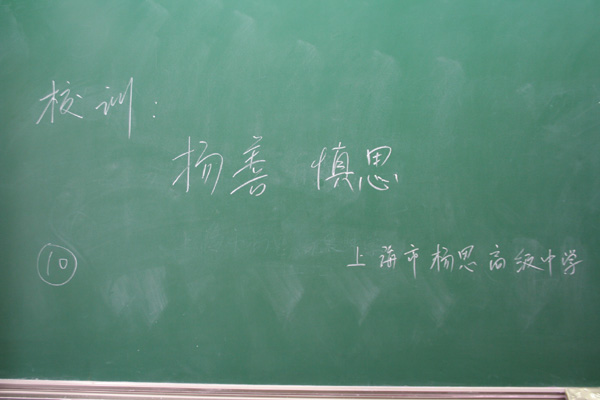 校训:
扬善 慎思
⑩ 上海市杨思高级中学